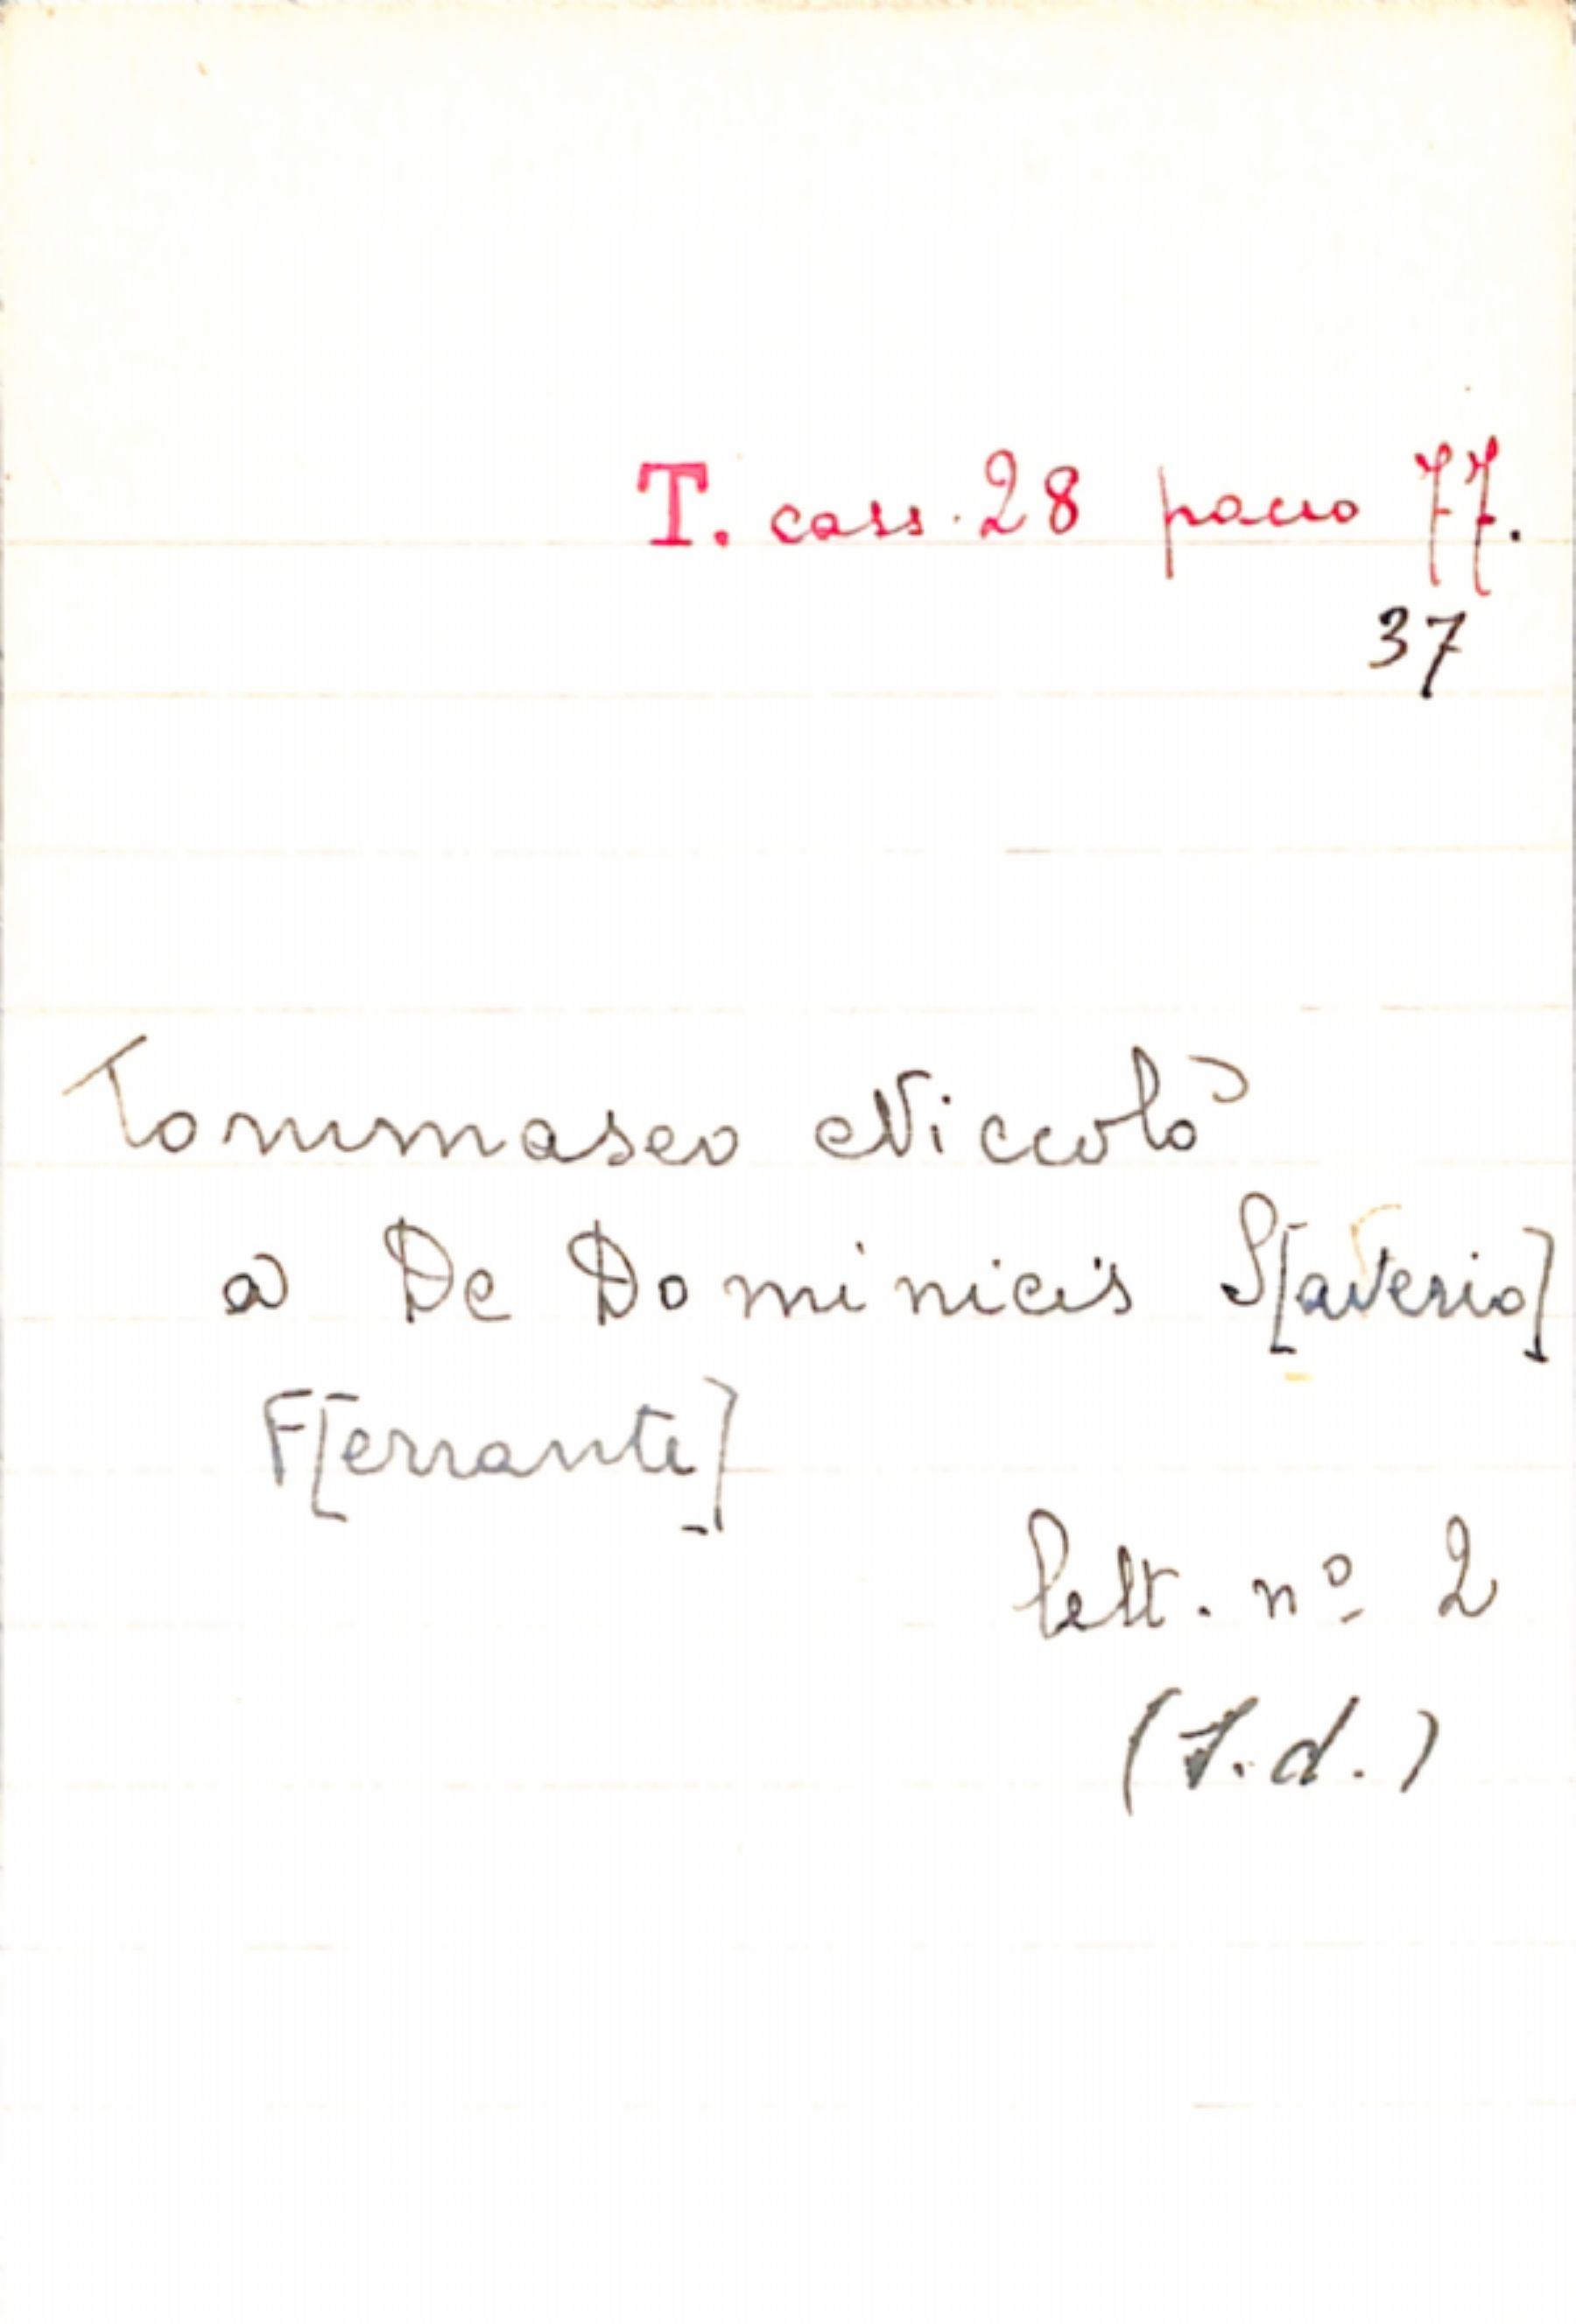 T. cass. 28 pacco 77.
37
Tommaseo Niccolò
a De Dominicis S[averio]
F[errante]
lett. nº 2
(s.d.)